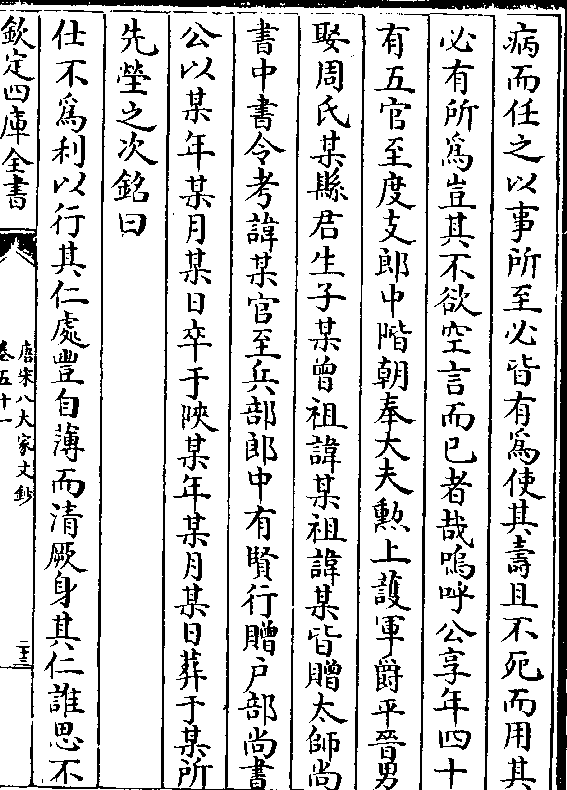 病而任之以事所至必皆有爲使其壽且不死而用其
必有所爲豈其不欲空言而已者哉嗚呼公享年四十
有五官至度支郎中階朝奉大夫勲上護軍爵平晉男
娶周氏某縣君生子某曾祖諱某祖諱某皆贈太師尚
書中書令考諱某官至兵部郎中有賢行贈户部尚書
公以某年某月某日卒于陜某年某月某日葬于某所
先塋之次銘曰
仕不爲利以行其仁處豐自薄而清厥身其仁誰思不
欽定四庫全書
唐宋八大家文鈔
卷五十一
二十三